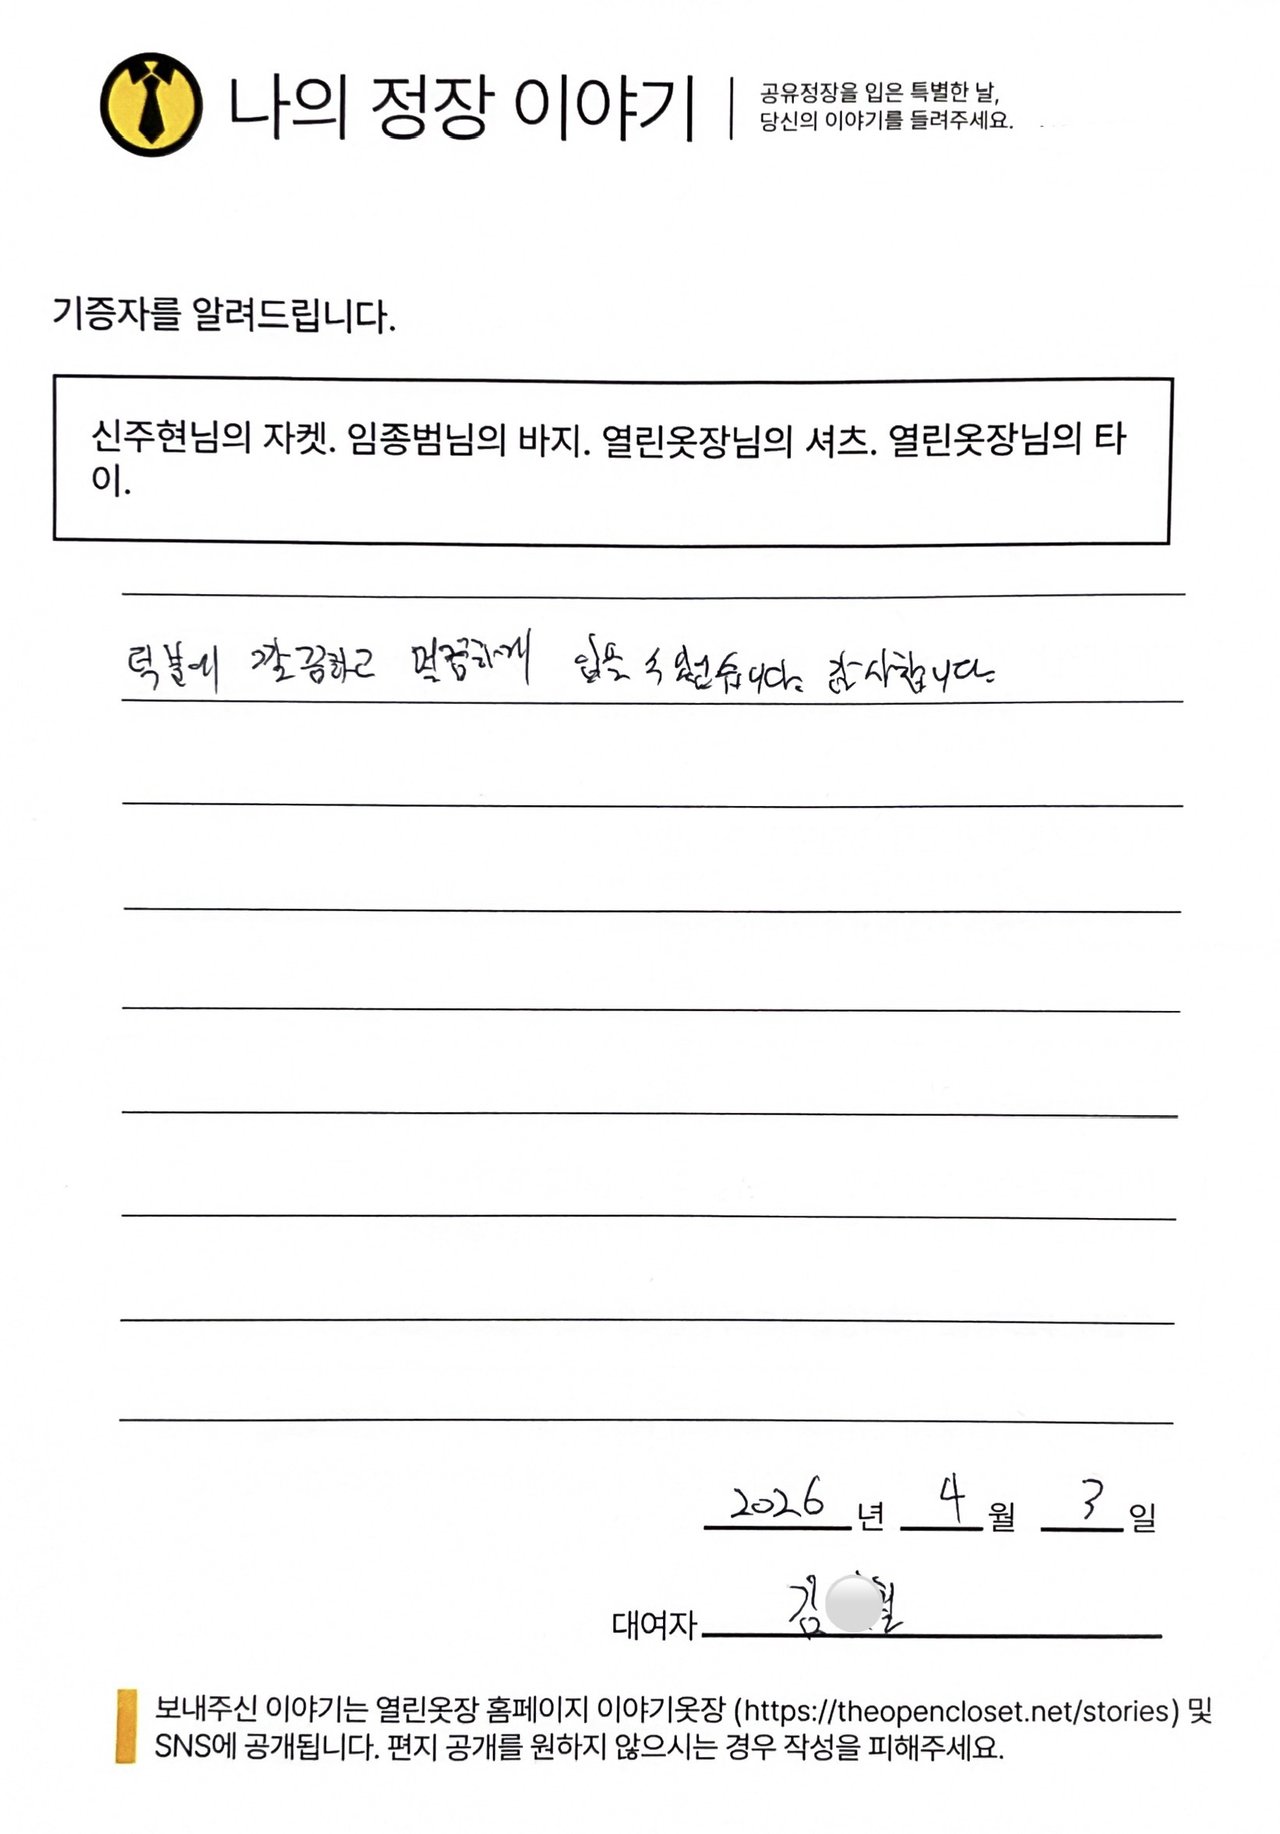 나의 정장 이야기
공유정장을 입은 특별한 날,
당신의 이야기를 들려주세요.
기증자를 알려드립니다.
신주현님의 자켓. 임종범님의 바지. 열린옷장님의 셔츠. 열린옷장님의 타
이.
덕분에 깔끔하고 멀끔하게 입을 수 있었습니다. 감사합니다.
2026 년 4 월 3 일
대여자 김
보내주신 이야기는 열린옷장 홈페이지 이야기옷장 (https://theopencloset.net/stories) 및
SNS에 공개됩니다. 편지 공개를 원하지 않으시는 경우 작성을 피해주세요.